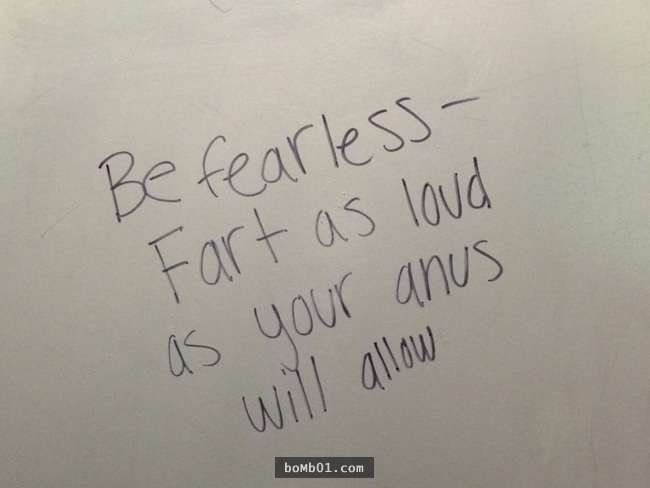 Be fearless-
Fart as loud
as your anus
will allow
boMb01.com